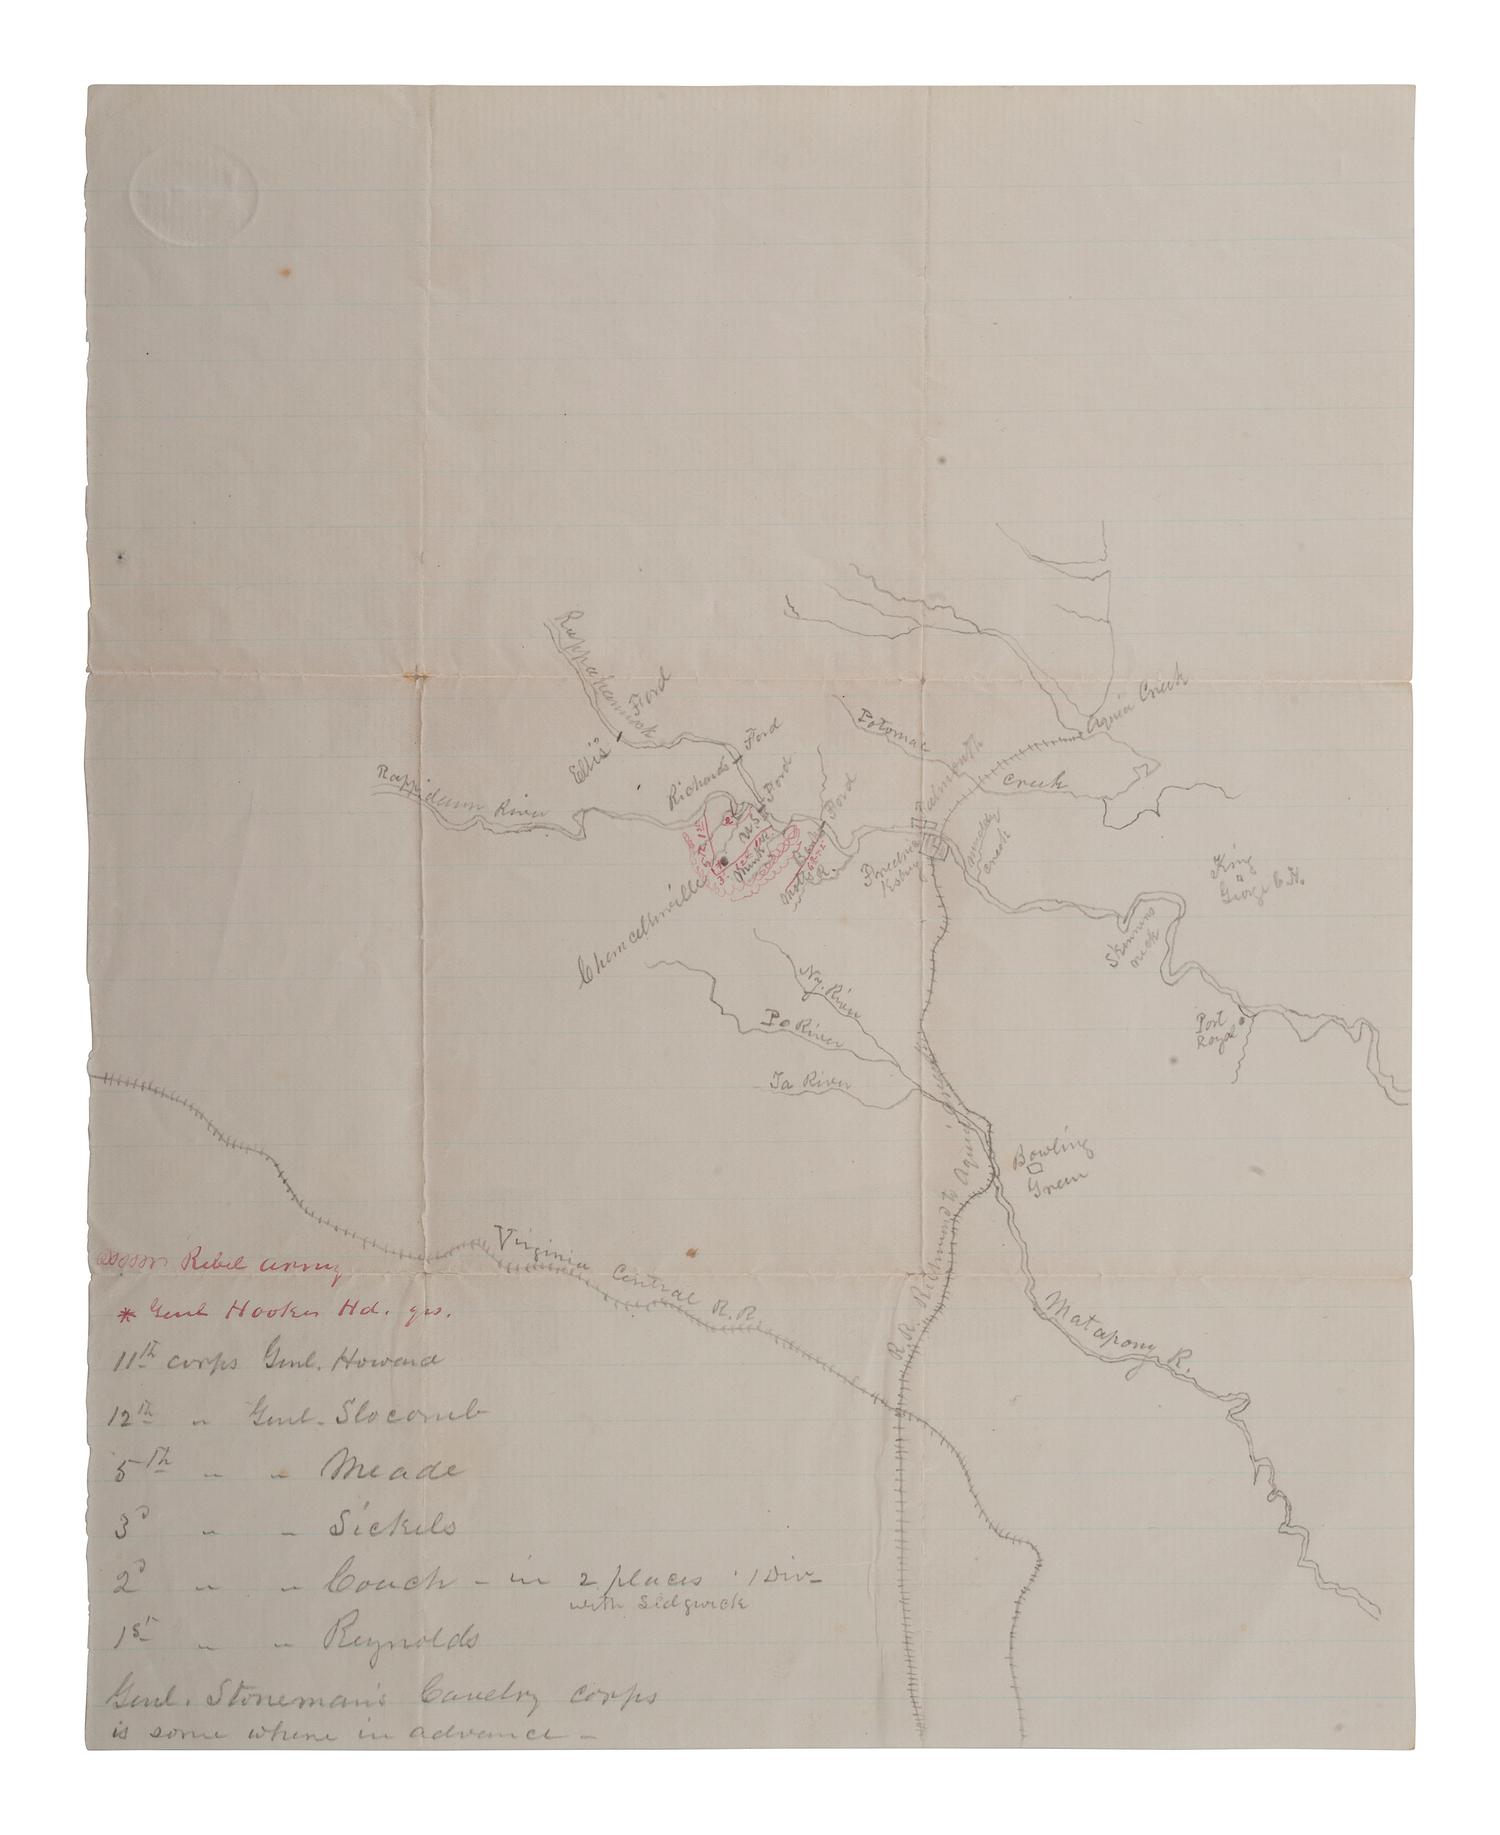 Rappahannock
Ellis' Ford
Richards Ford
U.S. Ford
Banks Ford
Potomac
Creek
Aquia Creek
Falmouth
Rappidann River
Mott R.
Fredricksburg
muddy
creek
King
George C.H.
Chancellorville
Skinners
neck
Port
Royal
Ny. River
Po River
Ta River
Bowling
Green
R.R. Richmond to Aquia
Virginia Central R.R.
Matapony R.
Rebel army
* Genl Hooker Hd. qrs.
11th corps Genl. Howard
12th " Genl. Slocomb
5th " " Meade
3d " " Sickels
2d " " Couch - in 2 places 1 Div-
with Sedgwick
1st " " Reynolds
Genl. Stoneman's Cavelry corps
is some where in advance -